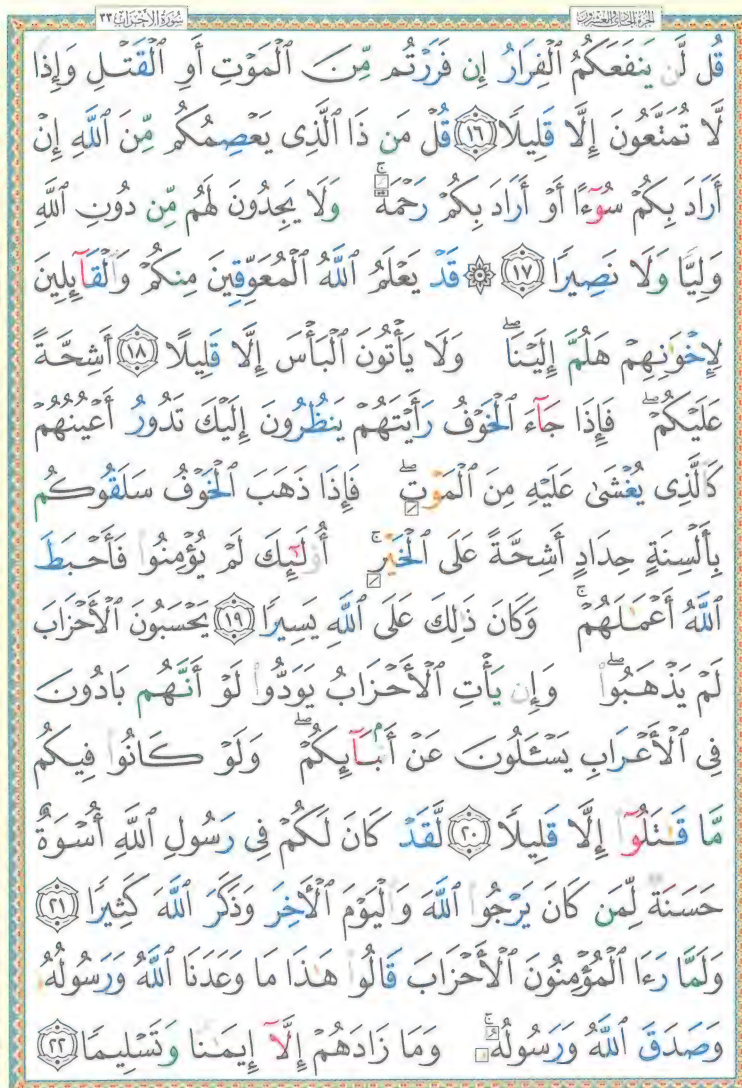 سُورَةُ الْأَحْزَابِ ٣٣
الجزء الحادي والعشرون
قُل لَّن يَنفَعَكُمُ ٱلْفِرَارُ إِن فَرَرْتُم مِّنَ ٱلْمَوْتِ أَوِ ٱلْقَتْلِ وَإِذًا
لَّا تُمَتَّعُونَ إِلَّا قَلِيلًا ١٦ قُلْ مَن ذَا ٱلَّذِى يَعْصِمُكُم مِّنَ ٱللَّهِ إِنْ
أَرَادَ بِكُمْ سُوٓءًا أَوْ أَرَادَ بِكُمْ رَحْمَةً ۚ وَلَا يَجِدُونَ لَهُم مِّن دُونِ ٱللَّهِ
وَلِيًّا وَلَا نَصِيرًا ١٧ ۞ قَدْ يَعْلَمُ ٱللَّهُ ٱلْمُعَوِّقِينَ مِنكُمْ وَٱلْقَآئِلِينَ
لِإِخْوَٰنِهِمْ هَلُمَّ إِلَيْنَا ۖ وَلَا يَأْتُونَ ٱلْبَأْسَ إِلَّا قَلِيلًا ١٨ أَشِحَّةً
عَلَيْكُمْ ۖ فَإِذَا جَآءَ ٱلْخَوْفُ رَأَيْتَهُمْ يَنظُرُونَ إِلَيْكَ تَدُورُ أَعْيُنُهُمْ
كَٱلَّذِى يُغْشَىٰ عَلَيْهِ مِنَ ٱلْمَوْتِ ۖ فَإِذَا ذَهَبَ ٱلْخَوْفُ سَلَقُوكُم
بِأَلْسِنَةٍ حِدَادٍ أَشِحَّةً عَلَى ٱلْخَيْرِ ۚ أُو۟لَٰٓئِكَ لَمْ يُؤْمِنُوا۟ فَأَحْبَطَ
ٱللَّهُ أَعْمَٰلَهُمْ ۚ وَكَانَ ذَٰلِكَ عَلَى ٱللَّهِ يَسِيرًا ١٩ يَحْسَبُونَ ٱلْأَحْزَابَ
لَمْ يَذْهَبُوا۟ ۖ وَإِن يَأْتِ ٱلْأَحْزَابُ يَوَدُّوا۟ لَوْ أَنَّهُم بَادُونَ
فِى ٱلْأَعْرَابِ يَسْـَٔلُونَ عَنْ أَنۢبَآئِكُمْ ۖ وَلَوْ كَانُوا۟ فِيكُم
مَّا قَٰتَلُوٓا۟ إِلَّا قَلِيلًا ٢٠ لَّقَدْ كَانَ لَكُمْ فِى رَسُولِ ٱللَّهِ أُسْوَةٌ
حَسَنَةٌ لِّمَن كَانَ يَرْجُوا۟ ٱللَّهَ وَٱلْيَوْمَ ٱلْـَٔاخِرَ وَذَكَرَ ٱللَّهَ كَثِيرًا ٢١
وَلَمَّا رَءَا ٱلْمُؤْمِنُونَ ٱلْأَحْزَابَ قَالُوا۟ هَٰذَا مَا وَعَدَنَا ٱللَّهُ وَرَسُولُهُۥ
وَصَدَقَ ٱللَّهُ وَرَسُولُهُۥ ۚ وَمَا زَادَهُمْ إِلَّآ إِيمَٰنًا وَتَسْلِيمًا ٢٢